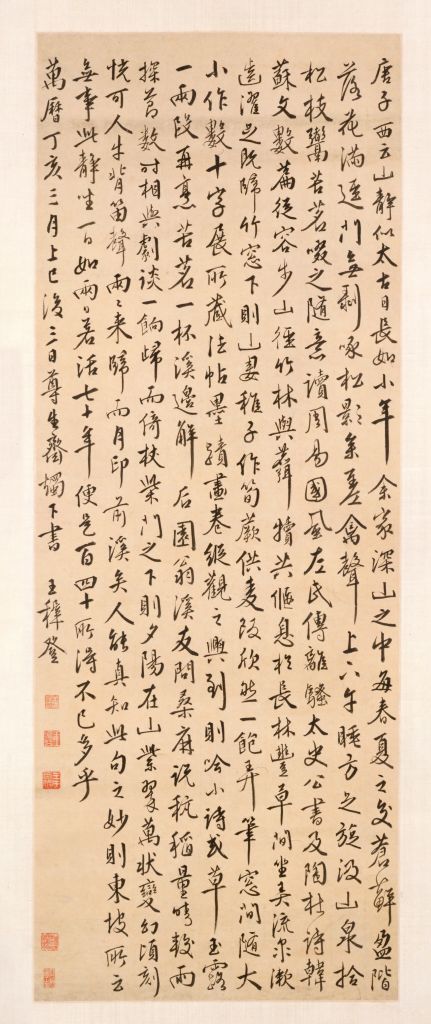 唐子西云山靜似太古日長如小年余家深山之中每春夏之交蒼蘚盈階
落花滿逕門無剝啄松影參差禽聲上下午睡方足旋汲山泉拾
松枝鬻苦茗啜之隨意讀周易國風左氏傳離騷太史公書及陶杜詩韓
蘇文數篇從容步山徑竹林與麛犢共偃息於長林豐草間坐弄流泉漱
齒濯足既歸竹窓下則山妻稚子作筍蕨供麥飯欣然一飽弄筆窓間隨大
小作數十字展所藏法帖墨蹟畫卷縱觀之興到則吟小詩或草玉露
一兩段再烹苦茗一杯溪邊解后園翁溪友問桑麻説秔稲量晴較雨
探節數時相與劇談一餉歸而倚杖柴門之下則夕陽在山紫翠萬狀變幻頃刻
恍可人牛背笛聲兩兩来歸而月印前溪矣人能真知此句之妙則東坡所云
無事此靜坐一日如兩日若活七十年便是百四十所得不已多乎
萬曆丁亥三月上巳後三日尊生齋燭下書 王穉登